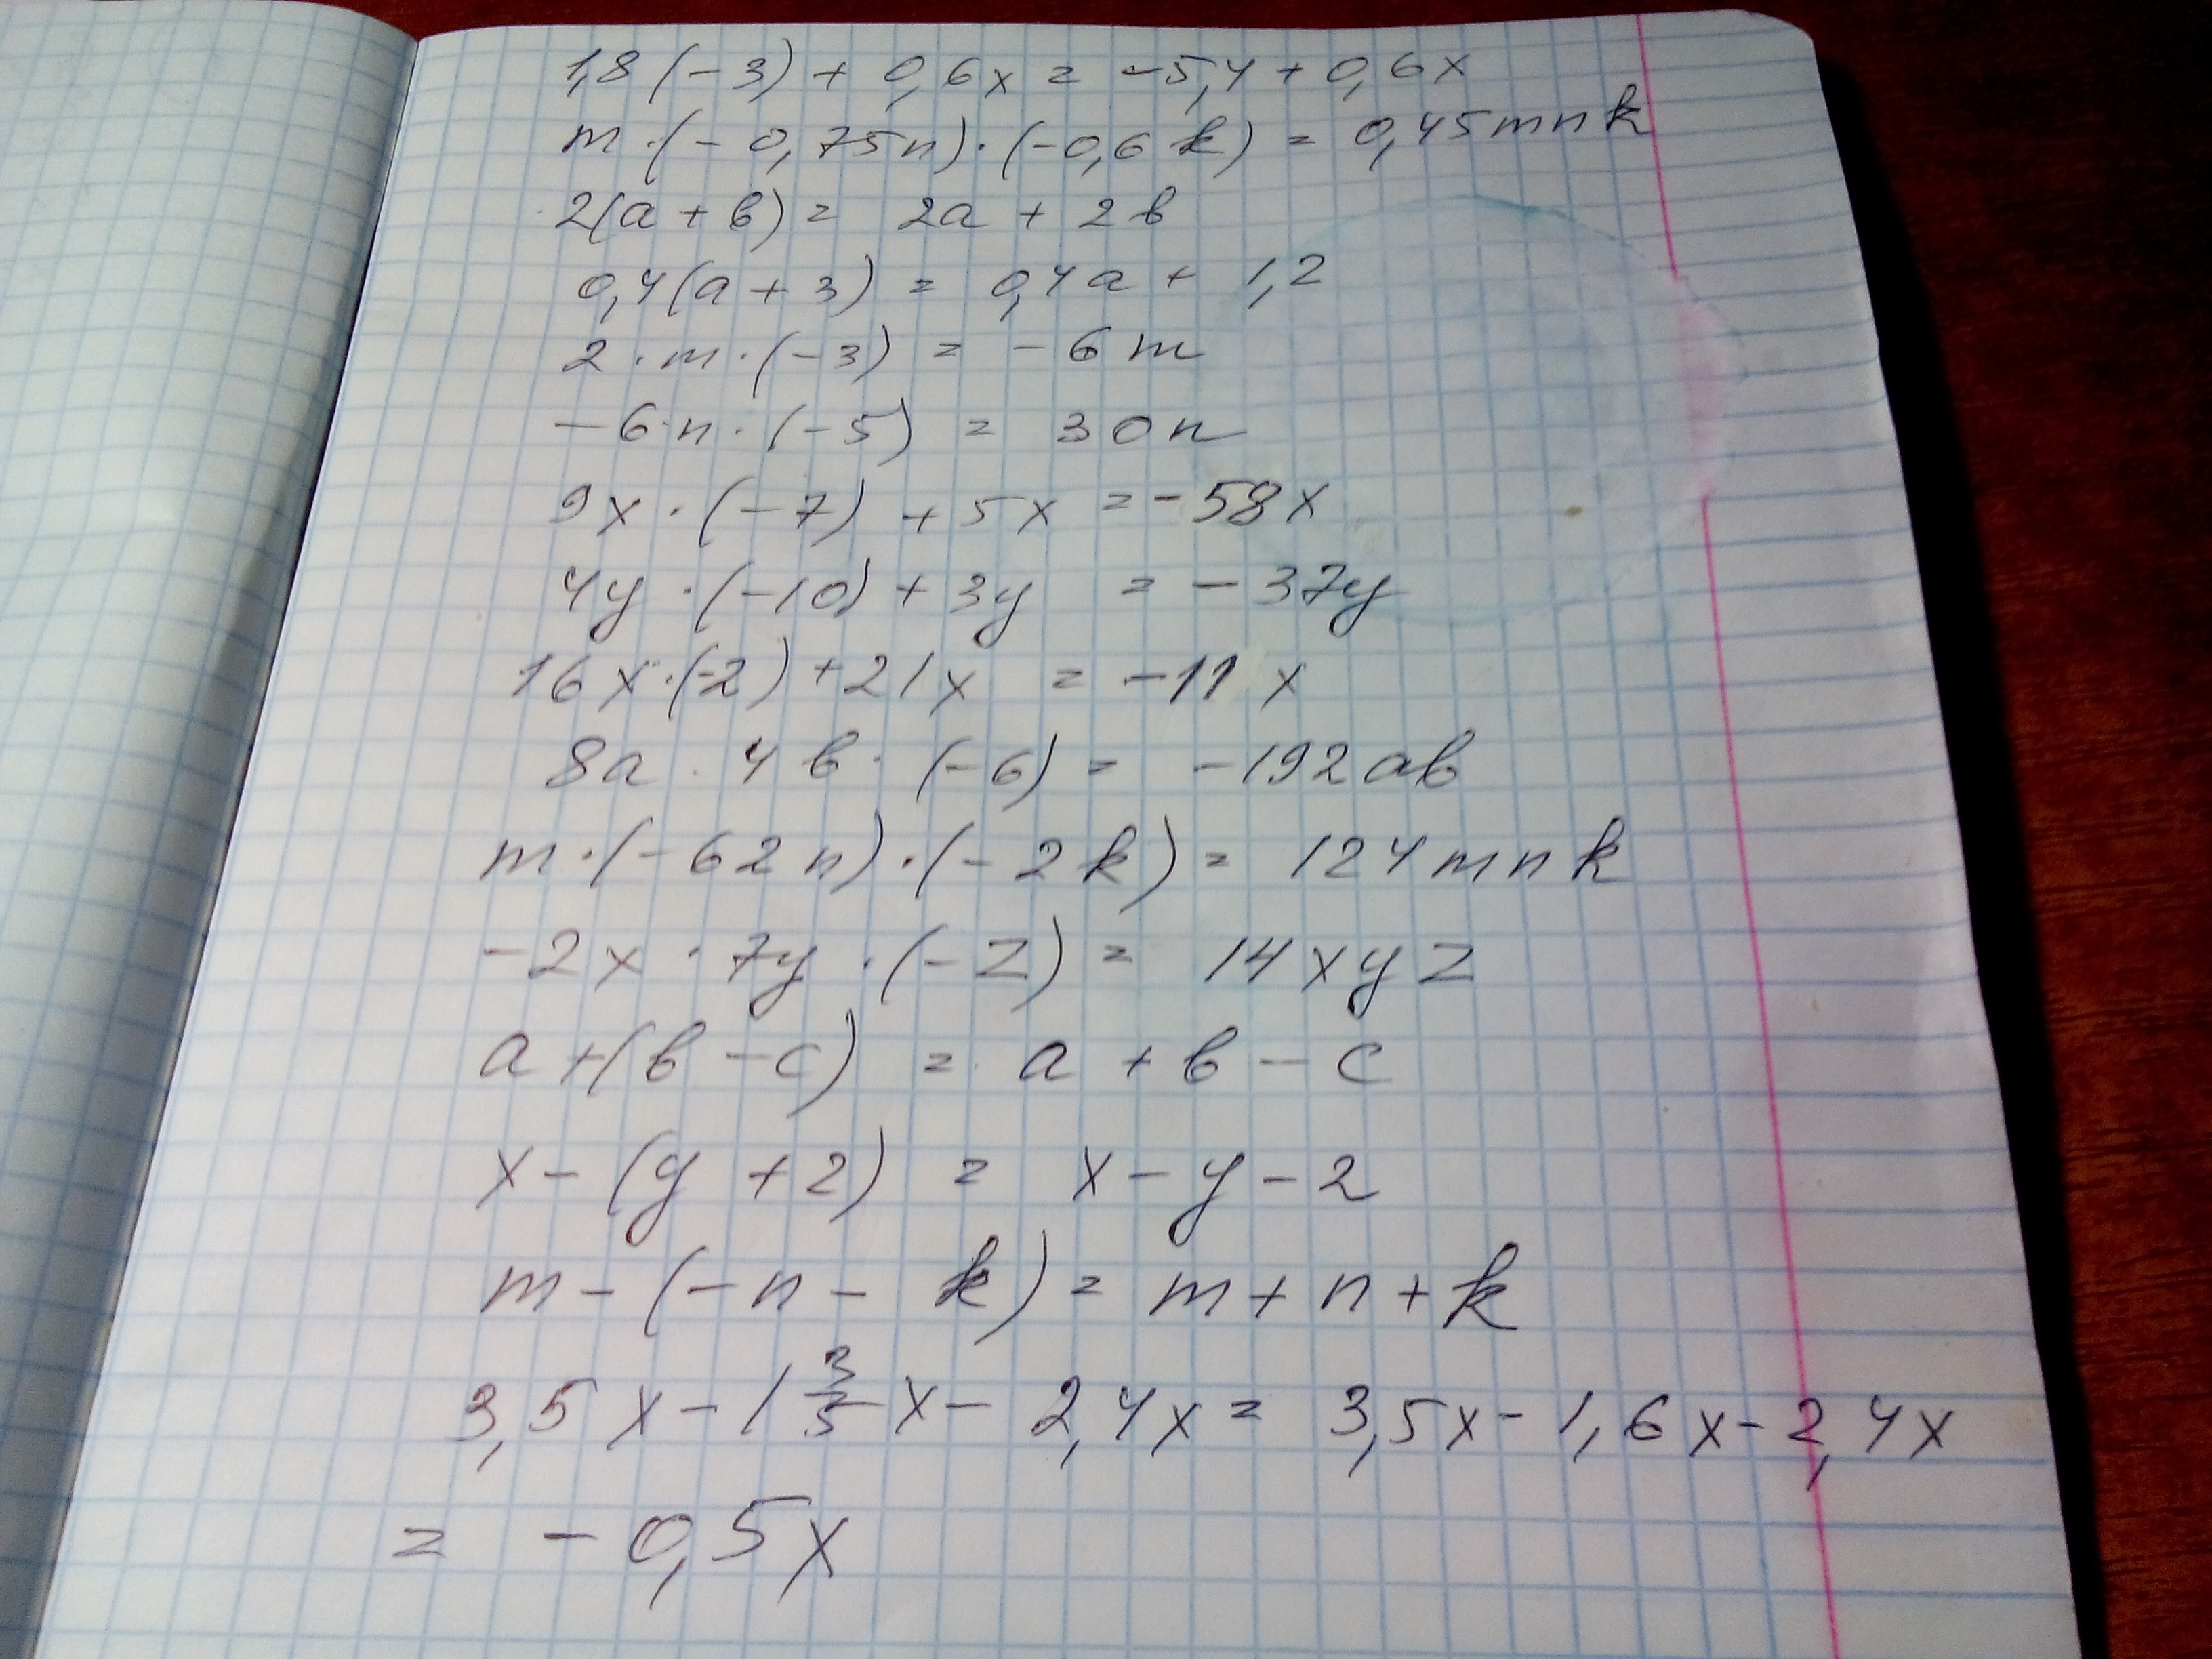 1,8(-3) + 0,6x = -5,4 + 0,6x
m · (-0,75n) · (-0,6k) = 0,45mnk
2(a + в) = 2a + 2в
0,4(a + 3) = 0,4a + 1,2
2 · m · (-3) = -6m
-6·n · (-5) = 30n
9x · (-7) + 5x = -58x
4y · (-10) + 3y = -37y
16x·(-2) + 21x = -11x
8a · 4в · (-6) = -192aв
m · (-62n) · (-2k) = 124mnk
-2x · 7y · (-z) = 14xyz
a + (в - c) = a + в - c
x - (y + 2) = x - y - 2
m - (-n - k) = m + n + k
3,5x - 1 3/5 x - 2,4x = 3,5x - 1,6x - 2,4x
= -0,5x